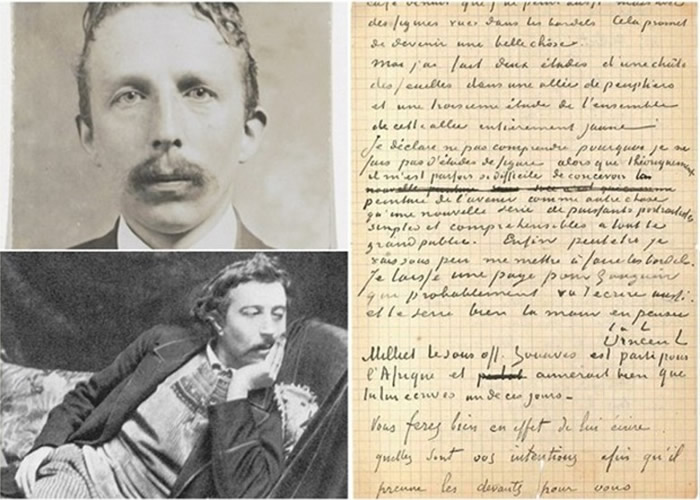 des figures vues dans les bordels. Cela promet
de devenir une belle chose.
Moi j'ai fait deux études d'une chûte
des feuilles dans une allée de peupliers
et une troisième étude de l'ensemble
de cette allée entièrement jaune
Je déclare ne pas comprendre pourquoi je ne
fais pas d'études de figure alors que théoriquement
il m'est parfois si difficile de concevoir la
peinture de l'avenir comme autre chose
qu'une nouvelle série de puissants portraitistes
simples et compréhensibles à tout le
grand public. Enfin peut être je
vais sous peu me mettre à faire les bordel.
Je laisse une page pour Gauguin
qui probablement va t'écrire aussi.
et te serre bien la main en pensée
t. à t.
Vincent
Milliet le sous off. Zouaves est parti pour
l'Afrique et aimerait bien que
tu lui écrives un de ces jours.
Vous ferez bien en effet de lui écrire
quelles sont vos intentions afin qu'il
prenne les devants pour vous